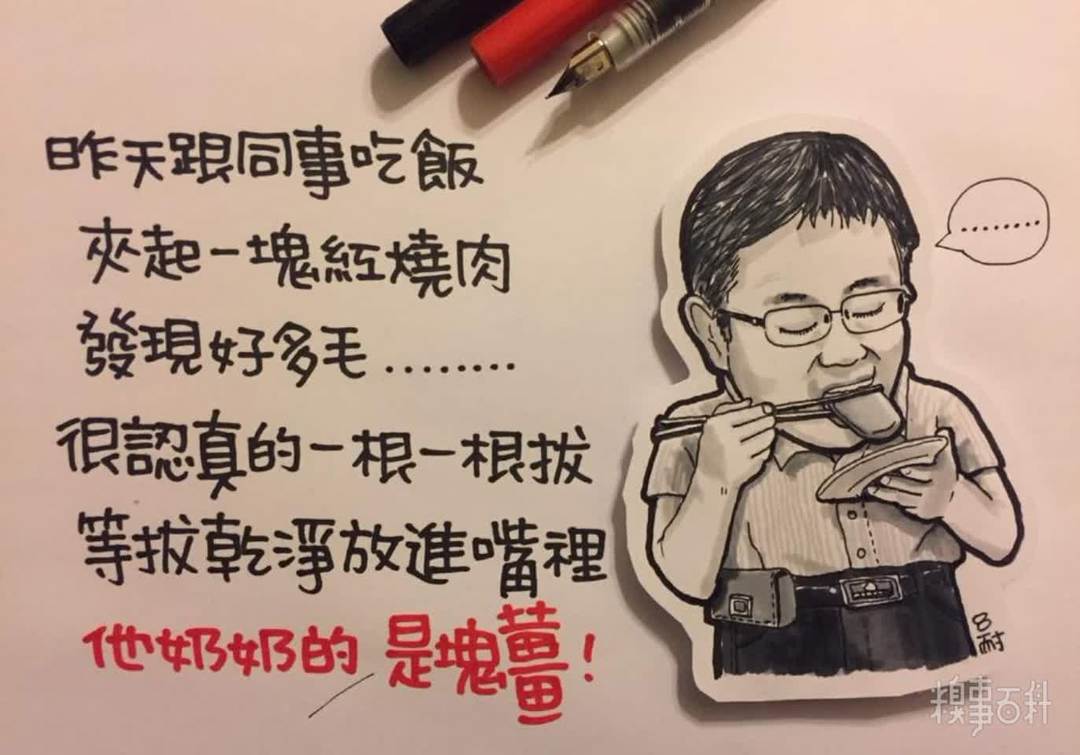 昨天跟同事吃飯
夾起一塊紅燒肉
發現好多毛........
很認真的一根一根拔
等拔乾淨放進嘴裡
他奶奶的 是塊薑!
........
呂耐
糗事百科